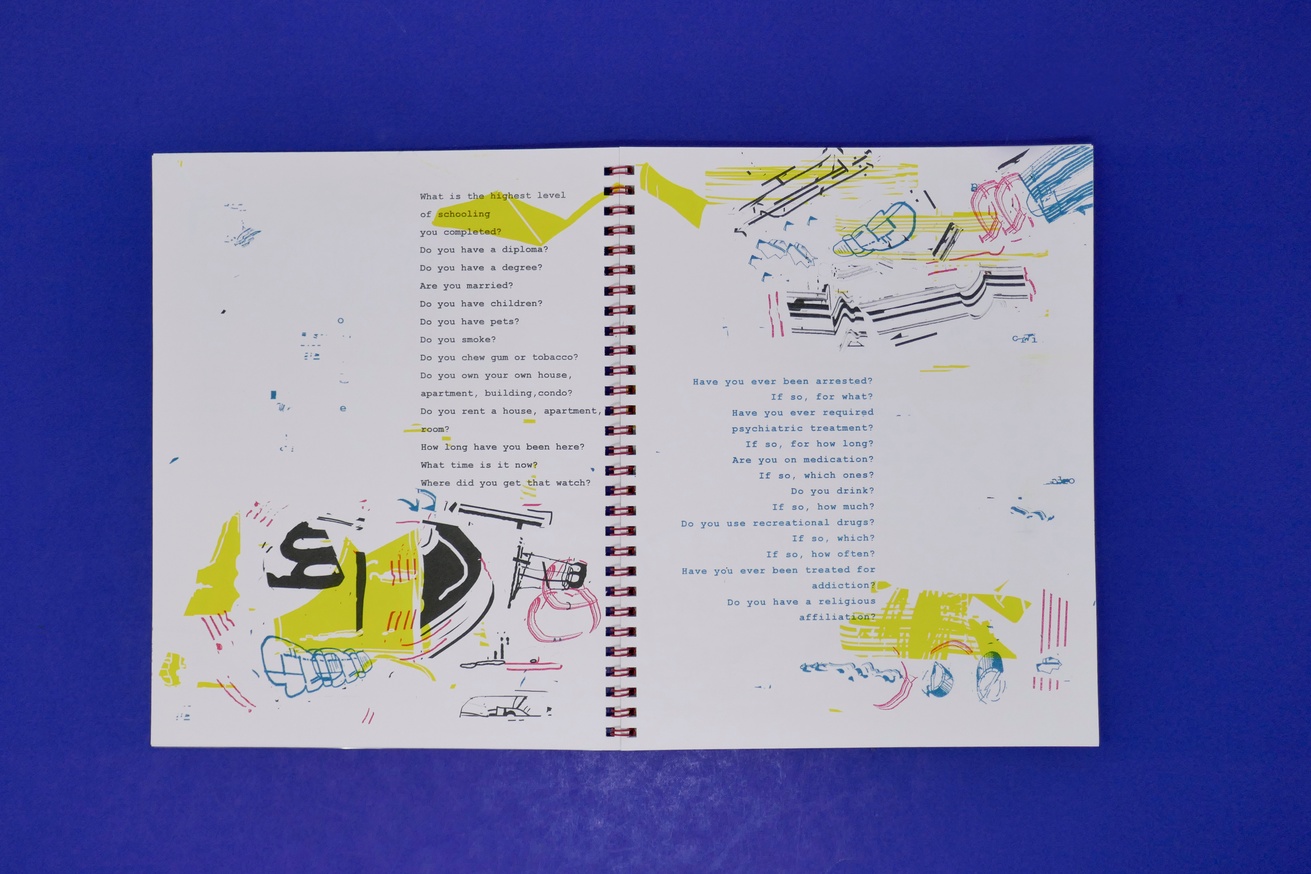 What is the highest level
of schooling
you completed?
Do you have a diploma?
Do you have a degree?
Are you married?
Do you have children?
Do you have pets?
Do you smoke?
Do you chew gum or tobacco?
Do you own your own house,
apartment, building,condo?
Do you rent a house, apartment,
room?
How long have you been here?
What time is it now?
Where did you get that watch?
Have you ever been arrested?
If so, for what?
Have you ever required
psychiatric treatment?
If so, for how long?
Are you on medication?
If so, which ones?
Do you drink?
If so, how much?
Do you use recreational drugs?
If so, which?
If so, how often?
Have you ever been treated for
addiction?
Do you have a religious
affiliation?